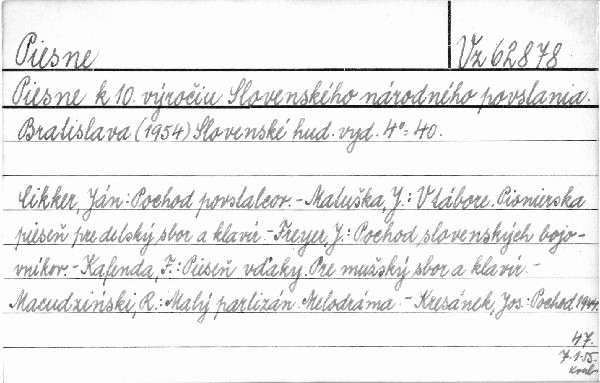 Piesne Vz 62878
Piesne k 10. výročiu Slovenského národného povstania.
Bratislava (1954) Slovenské hud. vyd. 4° = 40.
Cikker, Ján: Pochod povstalcov. - Matuška, J.: V tábore. Pionierska
pieseň pre detský sbor a klavír. - Freyer, J.: Pochod slovenských bojo-
vníkov. - Kafenda, F.: Pieseň vďaky. Pre mužský sbor a klavír. -
Macudziński, R.: Malý partizán. Melodráma. - Kresánek, Jos: Pochod 1944.
47.
7.1.55.